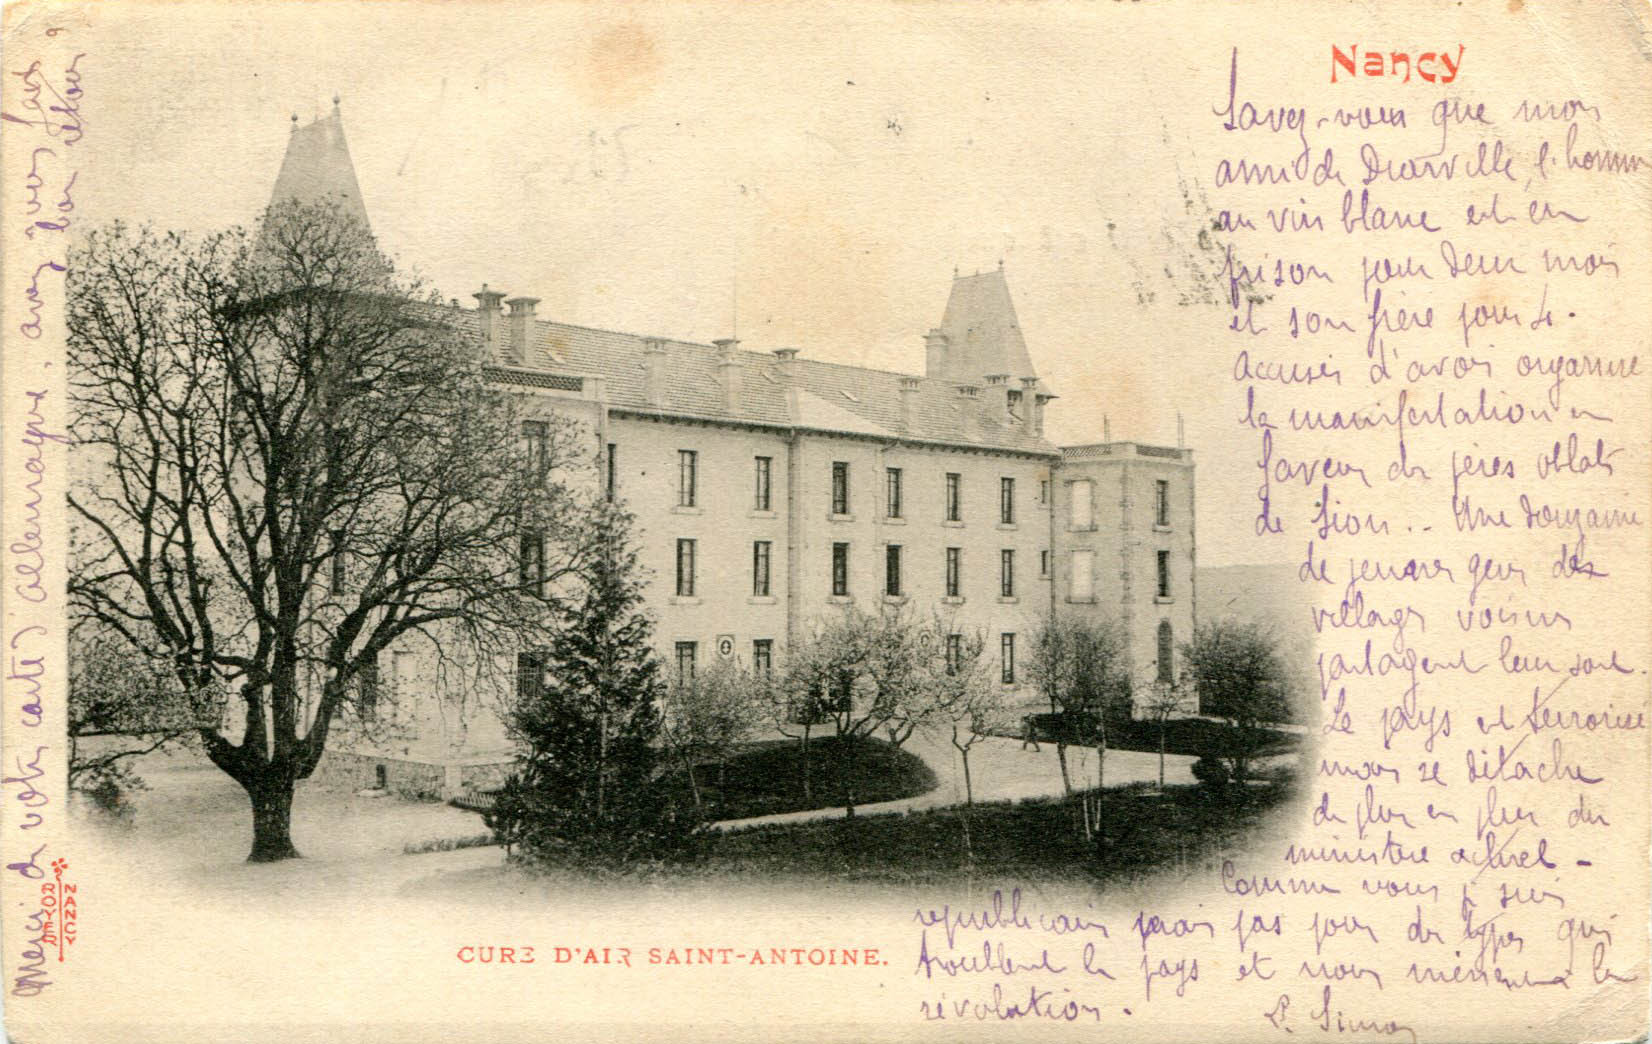 Nancy
Savez-vous que mon
ami de Diarville, l'homme
au vin blanc est en
prison pour deux mois
et son frère pour 4.
Accusés d'avoir organisé
la manifestation en
faveur des pères oblats
de Sion.. Une douzaine
de jeunes gens des
villages voisins
partagent leur sort.
Le pays est terrorisé
mais se détache
de plus en plus du
ministère actuel -
Comme vous je suis
républicain mais pas pour des types qui
troublent le pays et nous mènent à la
révolution.
P. Simon
Merci de votre carte d'allemagne, avez vous fait
bon retour ?
CURE D'AIR SAINT-ANTOINE.
ROYER
NANCY